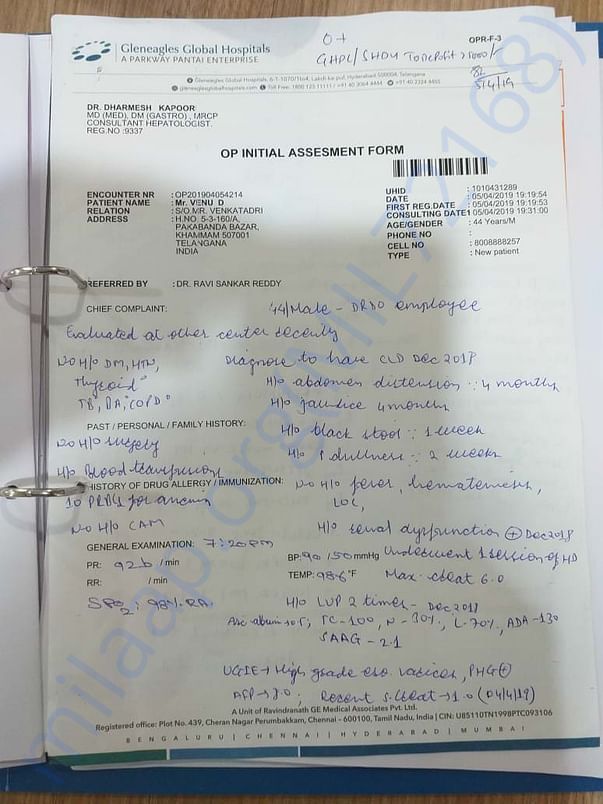 OPR-F-3
Gleneagles Global Hospitals
A PARKWAY PANTAI ENTERPRISE
O+
5/4/19
Gleneagles Global Hospitals, 6-1-1070/1to4, Lakdi-ka-pul, Hyderabad 500004, Telangana
gleneaglesglobalhospitals.com Toll Free: 1800 123 11111 / +91 40 3064 4444 +91 40 2324 4455
DR. DHARMESH KAPOOR
MD (MED), DM (GASTRO) , MRCP
CONSULTANT HEPATOLOGIST.
REG.NO :9337
OP INITIAL ASSESMENT FORM
ENCOUNTER NR : OP201904054214
PATIENT NAME : Mr. VENU D
RELATION : S/O MR. VENKATADRI
ADDRESS : H.NO. 5-3-160/A,
PAKABANDA BAZAR,
KHAMMAM 507001
TELANGANA
INDIA
UHID : 1010431289
DATE : 05/04/2019 19:19:54
FIRST REG.DATE : 05/04/2019 19:19:53
CONSULTING DATE1 05/04/2019 19:31:00
AGE/GENDER : 44 Years/M
PHONE NO :
CELL NO : 8008888257
TYPE : New patient
REFERRED BY : DR. RAVI SANKAR REDDY
CHIEF COMPLAINT: 44/Male - DRDO employee
Evaluated at other center recently
No H/o DM, HTN, Diagnose to have CLD Dec 2018
Thyroid H/o abdomen distension :: 4 months
TB, BA, COPD H/o jaundice 4 months
PAST / PERSONAL / FAMILY HISTORY: H/o black stool :: 1 week
No H/o surgery H/o ↑ dullness :: 2 weeks
H/o Blood transfusion
HISTORY OF DRUG ALLERGY / IMMUNIZATION: No H/o fever, hematemesis,
10 PRBCs for anemia LOC,
No H/o CAM H/o renal dysfunction ⊕ Dec 2018
GENERAL EXAMINATION: 7:20pm Underwent 1 session of HD
PR: 92b / min BP: 90 / 50 mmHg
RR: / min TEMP: 98.6 °F Max. creat 6.0
SPO2: 98% RA. H/o LVP 2 times - Dec 2018
Asc. album <0.5, TC-100, N-30%, L-70%, ADA-130
SAAG - 2.1
UGIE → High grade eso. varices, PHG ⊕
AFP → 3.0; Recent s.creat → 1.0 (04/4/19)
A Unit of Ravindranath GE Medical Associates Pvt. Ltd.
Registered office: Plot No. 439, Cheran Nagar Perumbakkam, Chennai - 600100, Tamil Nadu, India | CIN: U85110TN1998PTC093106
BENGALURU | CHENNAI | HYDERABAD | MUMBAI